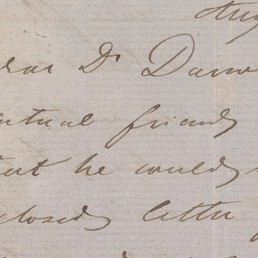 Aug
ear Dr Darw
utual friend
at he would
closed letter